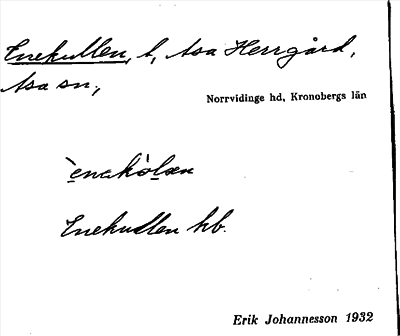 Enekullen, t, Asa Herrgård,
Asa sn.,
Norrvidinge hd, Kronobergs län
`enəkòlən
Enekullen hb.
Erik Johannesson 1932